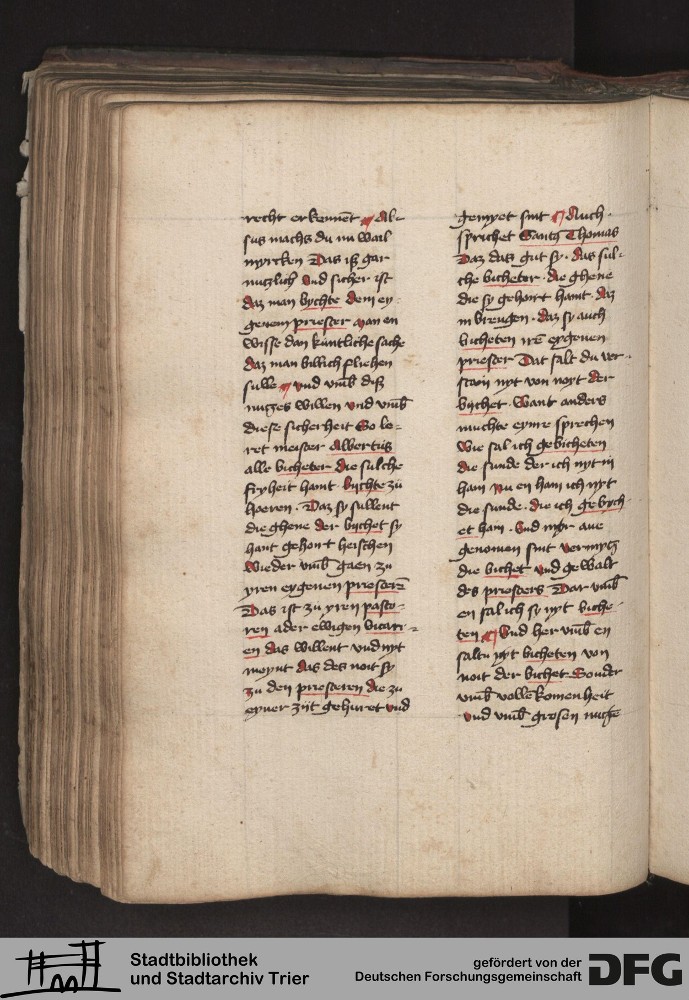 recht erkennēt ¶ Al-
sus machs du nu wail
myrcken Das iß gar
nutzlich vnd sicher ist
daz man bychte dem ey-
genem priester man en
wisse dan kuntliche sache
daz man billich fliehen
sulle ¶ vnd vmb diß
nutzes willen vnd vmb
diese sicherheit So le=
ret meister Albertus
alle bichteter die sulche
fryheit hant bychte zu
hoeren. Daz sy sullent
die ghene der bychet sy
hant gehort heischen
wieder vmb gaen zu
yren eygenen priesterē
Das ist zu yren pasto-
ren ader ewigen vicari=
en das willent vnd nyt
meynt das des noit sy
zu den priesteren die zu
eyner zijt gehuret vnd
gemyet sint ¶ Auch
sprichet Santg Thomas
Daz das gut sy. das sul-
che bichteter. die ghene
die sy gehort hant. daz
in brengen. daz sy auch
bichteten irē eygenen
priester Dat salt du ver-
stain nyt von noyt der
bychet. Want anders
muchte eyme sprechen
wie sal ich gebichteten
die sunde der ich nyt in
han Nu en han ich nyt
die sunde. die ich gebych-
et han. Vnd myr aue
genomen sint vermytz
die bichet vnd gewalt
des priesters Dar vmb
en sal ich sy nyt bichte-
ten ¶ Vnd her vmb en
saltu nyt bichteten von
noit der bichet Sonder
vmb vollekomenheit
vnd vmb grosen nutze
Stadtbibliothek
und Stadtarchiv Trier
gefördert von der
Deutschen Forschungsgemeinschaft
DFG